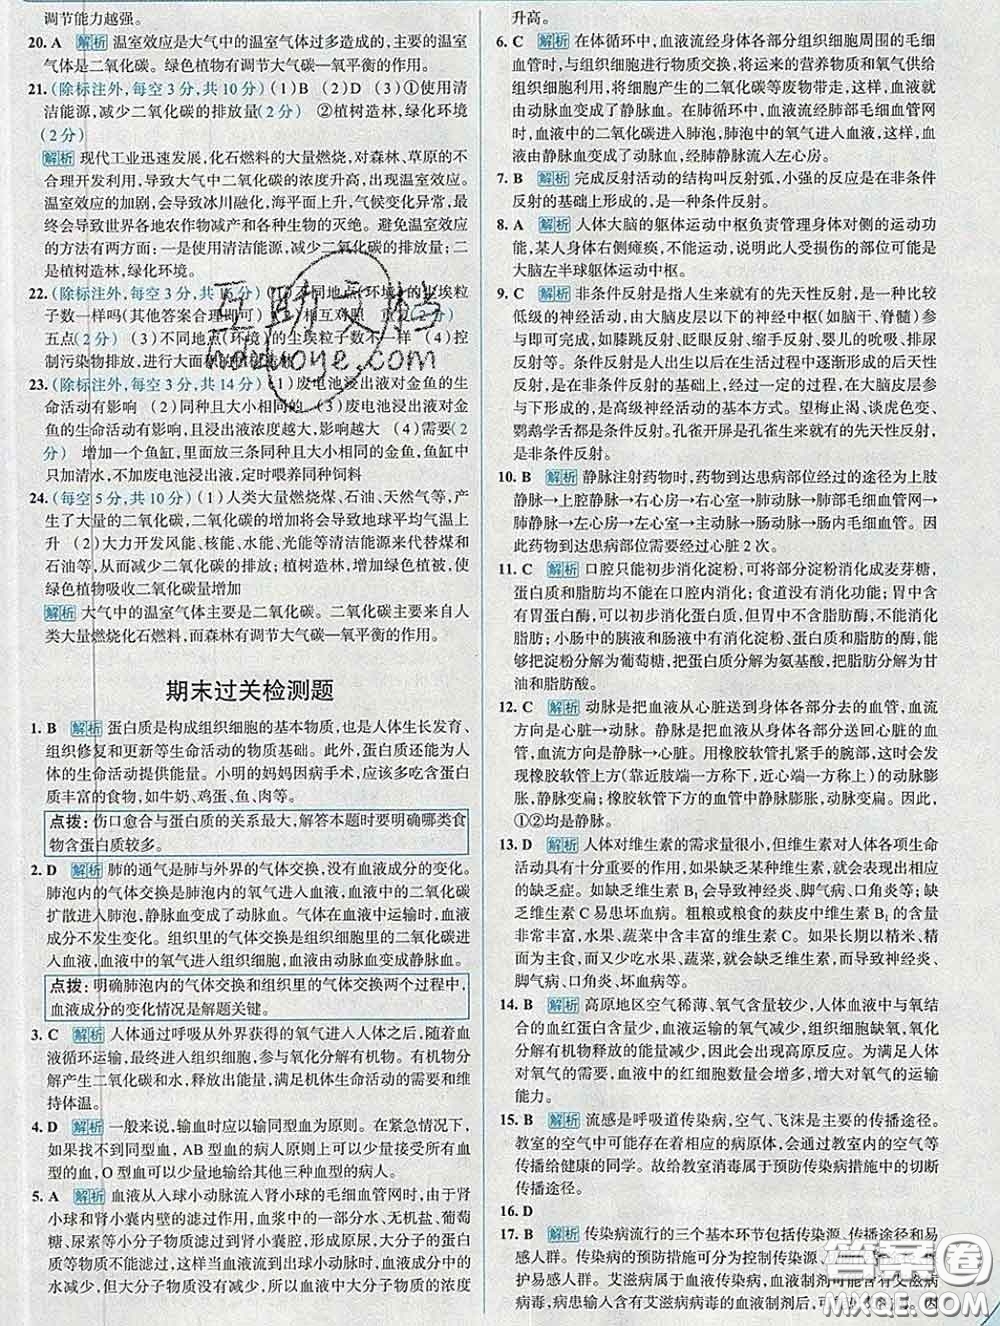 调节能力越强。
20. A 解析 温室效应是大气中的温室气体过多造成的,主要的温室
气体是二氧化碳。绿色植物有调节大气碳—氧平衡的作用。
21. (除标注外,每空3分,共10分) (1)B (2)D (3)①使用清
洁能源,减少二氧化碳的排放量(2分) ②植树造林,绿化环境
(2分)
解析 现代工业迅速发展,化石燃料的大量燃烧,对森林、草原的不
合理开发利用,导致大气中二氧化碳的浓度升高,出现温室效应。
温室效应的加剧,会导致冰川融化,海平面上升,气候变化异常,
最终会导致世界各地农作物减产和各种生物的灭绝。避免温室效应
的方法有两方面:一是使用清洁能源,减少二氧化碳的排放量;二
是植树造林,绿化环境。
22. (除标注外,每空3分,共 分) (1)不同地点(环境)的尘埃粒
子数一样吗(其他答案合理即可) (2)相互对照 重复(2分)
五点(2分) (3)不同地点(环境)的尘埃粒子数不一样 (4)控
制污染物排放,进行大面积的
23. (除标注外,每空3分,共14分) (1)废电池浸出液对金鱼的生
命活动有影响 (2)同种且大小相同的 (3)废电池浸出液对金
鱼的生命活动有影响,且浸出液浓度越大,影响越大 (4)需要(2
分) 增加一个鱼缸,里面放三条同种且大小相同的金鱼,鱼缸中
只加清水,不加废电池浸出液,定时喂养同种饲料
24. (每空5分,共10分) (1)人类大量燃烧煤、石油、天然气等,产
生了大量的二氧化碳,二氧化碳的增加将会导致地球平均气温上
升 (2)大力开发风能、核能、水能、光能等清洁能源来代替煤和
石油等,从而减少二氧化碳的排放;植树造林,增加植被面积,使
绿色植物吸收二氧化碳量增加
解析 大气中的温室气体主要是二氧化碳。二氧化碳主要来自人
类大量燃烧化石燃料,而森林有调节大气中碳—氧平衡的作用。
期末过关检测题
1. B 解析 蛋白质是构成组织细胞的基本物质,也是人体生长发育、
组织修复和更新等生命活动的物质基础。此外,蛋白质还能为人
体的生命活动提供能量。小明的妈妈因病手术,应该多吃含蛋白
质丰富的食物,如牛奶、鸡蛋、鱼、肉等。
点拨:伤口愈合与蛋白质的关系最大,解答本题时要明确哪类食
物含蛋白质较多。
2. D 解析 肺的通气是肺与外界的气体交换,没有血液成分的变化。
肺泡内的气体交换是肺泡内的氧气进入血液,血液中的二氧化碳
扩散进入肺泡,静脉血变成了动脉血。气体在血液中运输时,血液
成分不发生变化。组织里的气体交换是组织细胞里的二氧化碳进
入血液,血液中的氧气进入组织细胞,血液由动脉血变成静脉血。
点拨:明确肺泡内的气体交换和组织里的气体交换两个过程中,
血液成分的变化情况是解题关键。
3. C 解析 人体通过呼吸从外界获得的氧气进入人体之后,随着血
液循环运输,最终进入组织细胞,参与氧化分解有机物。有机物分
解产生二氧化碳和水,释放出能量,满足机体生命活动的需要和维
持体温。
4. D 解析 一般来说,输血时应以输同型血为原则。在紧急情况下,
如果找不到同型血,AB型血的病人原则上可以少量接受所有血
型的血,O型血可以少量地输给其他三种血型的病人。
5. A 解析 血液从入球小动脉流入肾小球的毛细血管网时,由于肾
小球和肾小囊内壁的滤过作用,血浆中的一部分水、无机盐、葡萄
糖、尿素等小分子物质滤过到肾小囊腔,形成原尿,大分子的蛋白
质等物质不能滤过。这样当血液流到出球小动脉时,血液成分中的
水减少,但大分子物质没有减少,所以血液中的大分子物质的浓度
升高。
6. C 解析 在体循环中,血液流经身体各部分组织细胞周围的毛细
血管时,与组织细胞进行物质交换,将运来的营养物质和氧气供给
组织细胞利用,将细胞产生的二氧化碳等废物带走,这样,血液
就由动脉血变成了静脉血。在肺循环中,血液流经肺部毛细血管网
时,血液中的二氧化碳进入肺泡,肺泡中的氧气进入血液,这样,血
液由静脉血变成了动脉血,经肺静脉流人左心房。
7. B 解析 完成反射活动的结构叫反射弧,小强的反应是在非条件
反射的基础上形成的,是一种条件反射。
8. A 解析 人体大脑的躯体运动中枢负责管理身体对侧的运动功
能,某人身体右侧瘫痪,不能运动,说明此人受损伤的部位可能是
大脑左半球躯体运动中枢。
9. C 解析 非条件反射是指人生来就有的先天性反射,是一种比较
低级的神经活动,由大脑皮层以下的神经中枢(如脑干、脊髓)参与
即可完成,如膝跳反射、眨眼反射、缩手反射、婴儿的吮吸、排尿
反射等。条件反射是人出生以后在生活过程中逐渐形成的后天性
反射,是在非条件反射的基础上,经过一定的过程,在大脑皮层参
与下形成的,是高级神经活动的基本方式。望梅止渴、谈虎色变、
鹦鹉学舌都是条件反射。孔雀开屏是孔雀生来就有的先天性反射,
是非条件反射。
10. B 解析 静脉注射药物时,药物到达患病部位经过的途径为上肢
静脉→上腔静脉→右心房→右心室→肺动脉→肺部毛细血管网→
肺静脉→左心房→左心室→主动脉→肠动脉→肠内毛细血管。因
此药物到达患病部位需要经过心脏2次。
11. C 解析 口腔只能初步消化淀粉,可将部分淀粉消化成麦芽糖,
蛋白质和脂肪均不能在口腔内消化;食道没有消化功能;胃中含
有胃蛋白酶,可以初步消化蛋白质,但是胃中没有消化脂肪的酶,不能消化
脂肪;小肠中的胰液和肠液中有消化淀粉、蛋白质和脂肪的酶,能
够把淀粉分解为葡萄糖,把蛋白质分解为氨基酸,把脂肪分解为甘
油和脂肪酸。
12. C 解析 动脉是把血液从心脏送到身体各部分去的血管,血流
方向是心脏→动脉。静脉是将血液从身体各部分送回心脏的血
管,血流方向是静脉→心脏。用橡胶软管扎紧手的腕部,这时会发
现橡胶软管上方(靠近肢端一方称下,近心端一方称上)的动脉膨
胀,静脉萎缩;橡胶软管下方的血管中静脉膨胀,动脉萎缩。因此,
①②均是静脉。
13. D 解析 人体对维生素的需求量很小,但维生素对人体各项生命
活动具有十分重要的作用,如果缺乏某种维生素,就会表现出相应
的缺乏症。如维生素B1会导致神经炎、脚气病、口角炎等;缺
乏维生素C易患坏血病。粗粮或粮食的麸皮中维生素B1的含量
非常丰富,水果、蔬菜中含丰富的维生素C。如果长期以精米、精
面为主食,而又少吃水果、蔬菜,人就会因缺乏维生素而导致神经炎、
脚气病、口角炎、坏血病等。
14. B 解析 高原地区空气稀薄、氧气含量较少,人体血液中与氧结
合的血红蛋白含量减少,血液运输的氧气减少,组织细胞缺氧,氧化
分解有机物释放的能量减少,因此会出现高原反应。为满足人体
对氧气的需要,血液中的红细胞数量会增多,增大对氧气的运输
能力。
15. B 解析 流感是呼吸道传染病,空气、飞沫是主要的传播途径。
教室的空气中可能存在着相应的病原体,会通过教室内的空气等
传播给健康的同学。故给教室消毒属于预防传染病措施中的切断
传播途径。
16. D
17. B 解析 传染病流行的三个基本环节包括传染源、传播途径和易
感人群。传染病的预防措施可分为控制传染源、
护易感人群。艾滋病属于血液传染病,血液制剂可能含有艾滋病
病毒,病患输入含有艾滋病病毒的血液制剂后,可
互助文档
hdzuoye.com
答案圈
MXQE.COM